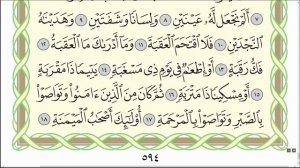 ٧ أَلَمْ نَجْعَل لَّهُۥ عَيْنَيْنِ ٨ وَلِسَانًا وَشَفَتَيْنِ ٩ وَهَدَيْنَٰهُ
ٱلنَّجْدَيْنِ ١٠ فَلَا ٱقْتَحَمَ ٱلْعَقَبَةَ ١١ وَمَآ أَدْرَىٰكَ مَا ٱلْعَقَبَةُ ١٢
فَكُّ رَقَبَةٍ ١٣ أَوْ إِطْعَٰمٌ فِى يَوْمٍ ذِى مَسْغَبَةٍ ١٤ يَتِيمًا ذَا مَقْرَبَةٍ
١٥ أَوْ مِسْكِينًا ذَا مَتْرَبَةٍ ١٦ ثُمَّ كَانَ مِنَ ٱلَّذِينَ ءَامَنُوا۟ وَتَوَاصَوْا۟
بِٱلصَّبْرِ وَتَوَاصَوْا۟ بِٱلْمَرْحَمَةِ ١٧ أُو۟لَٰٓئِكَ أَصْحَٰبُ ٱلْمَيْمَنَةِ ١٨
٥٩٤